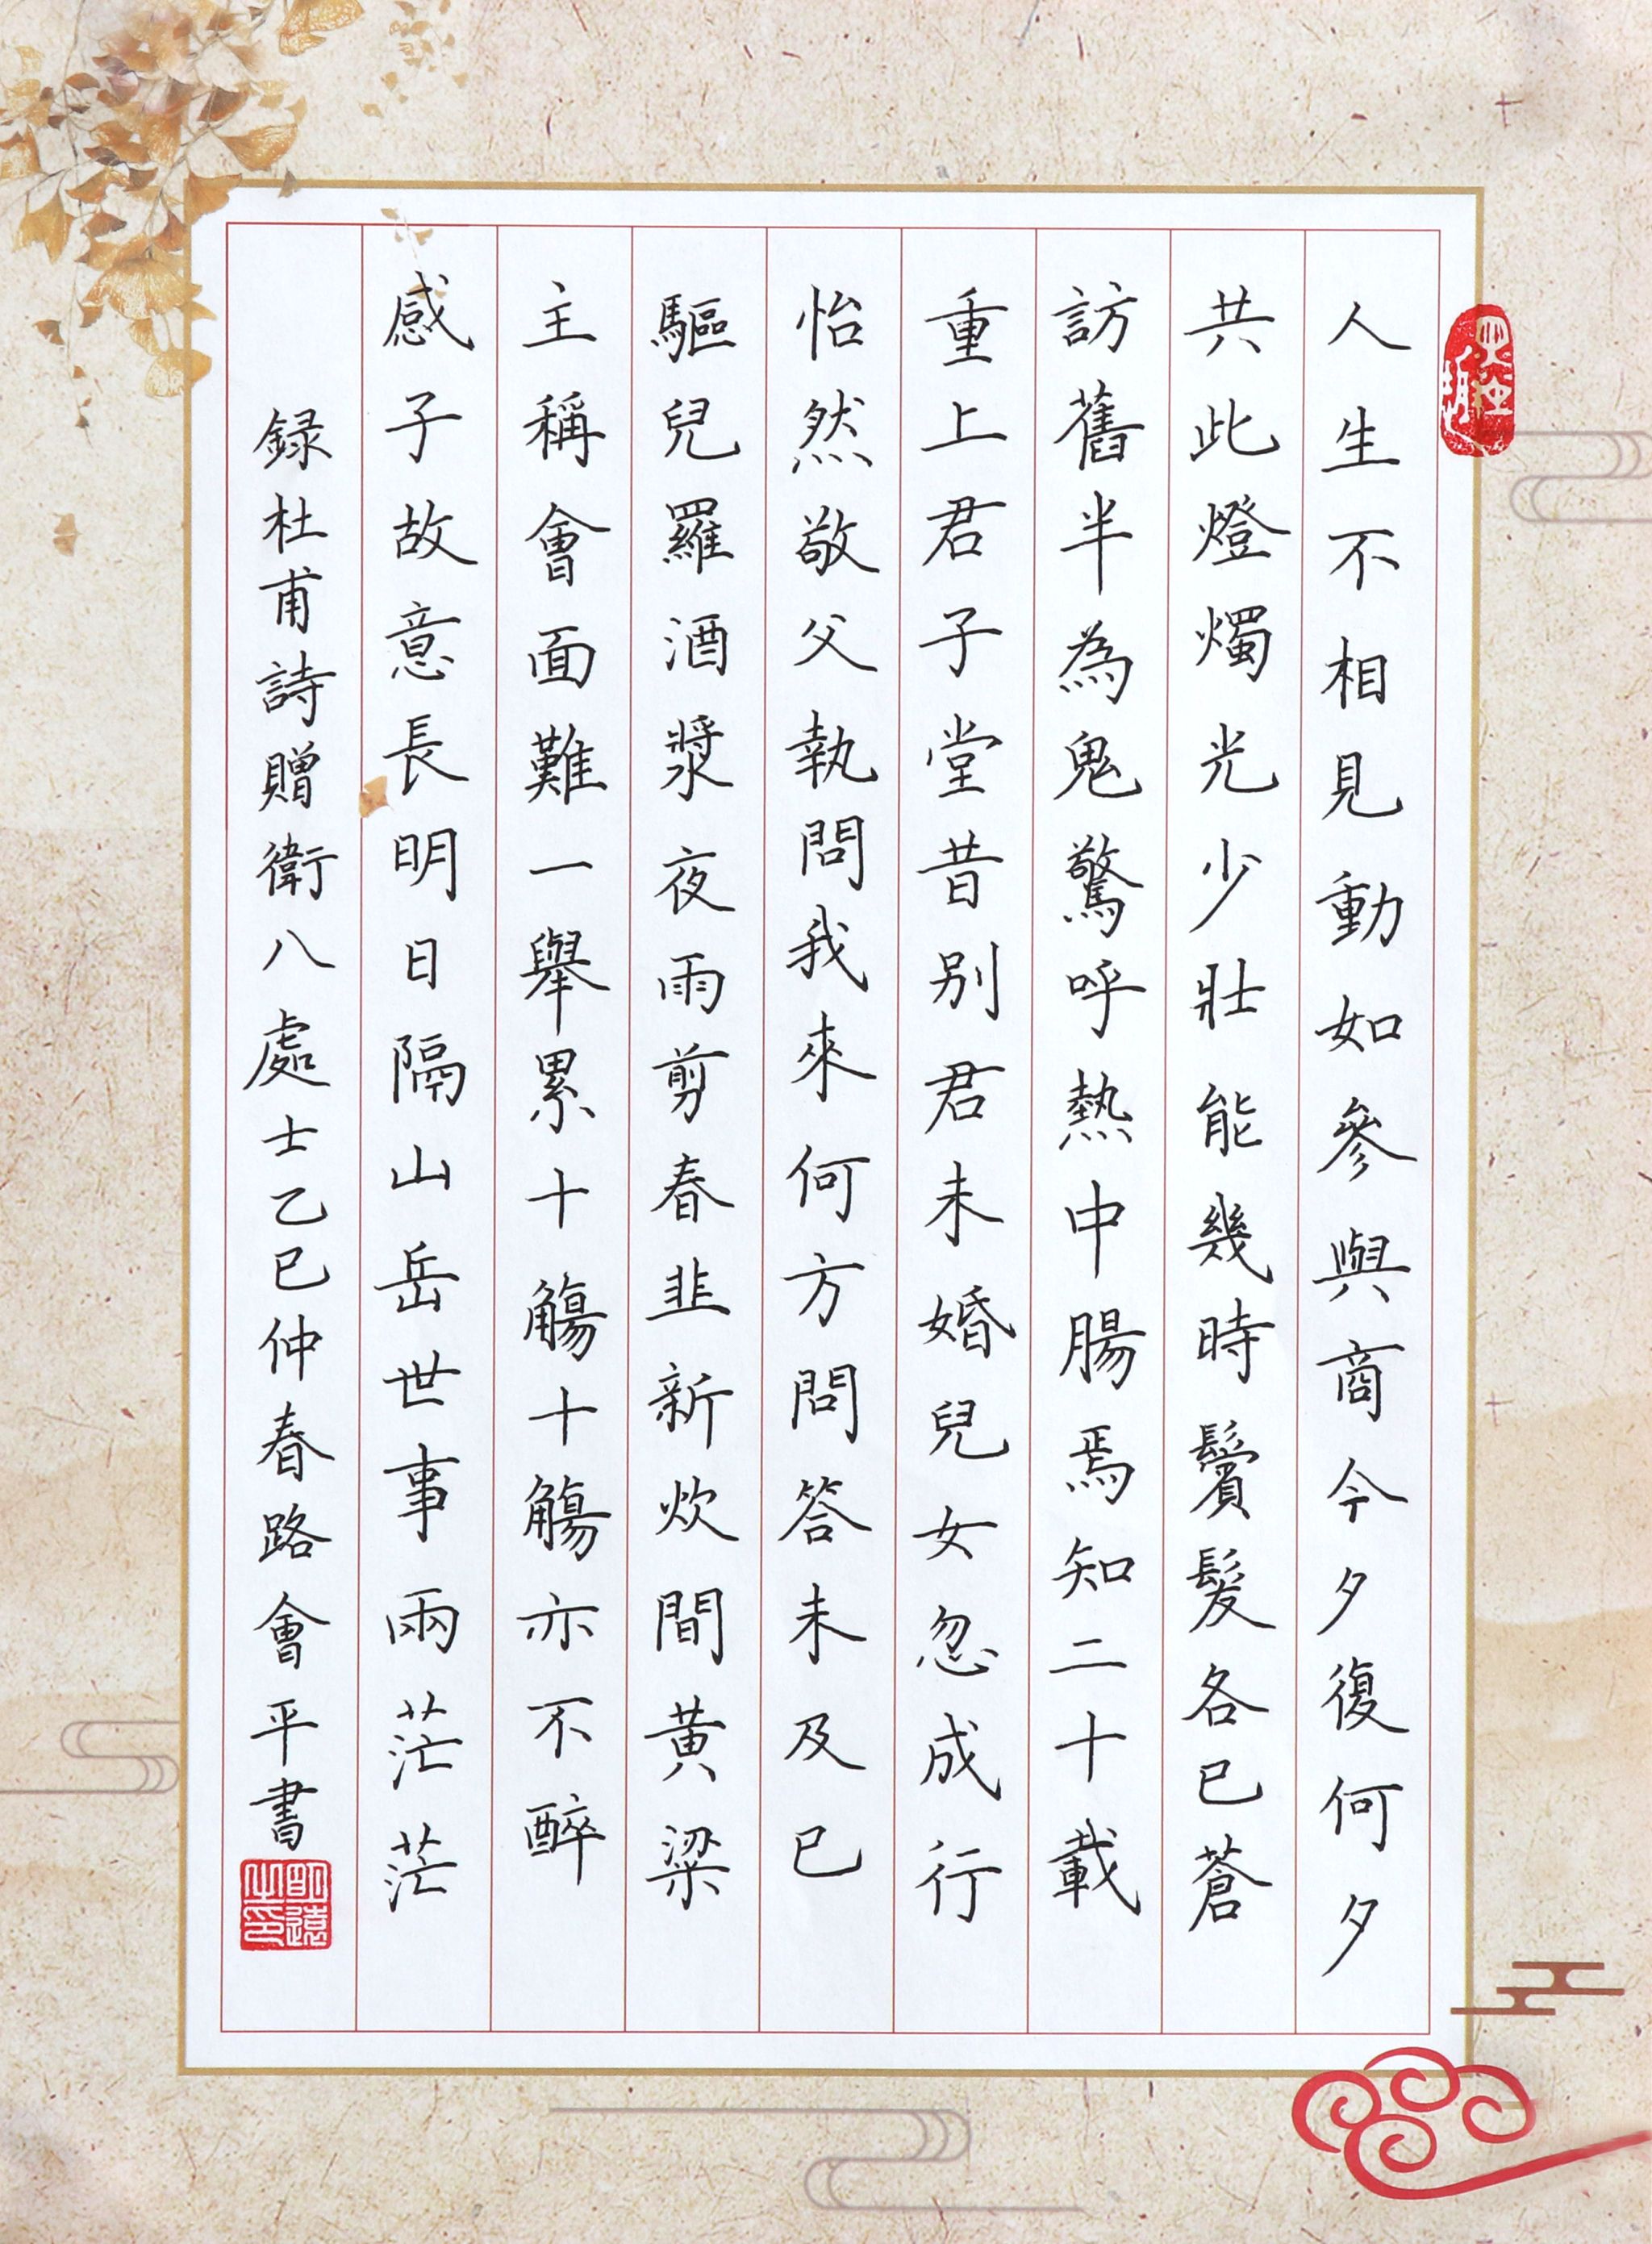 人生不相見動如參與商今夕復何夕
共此燈燭光少壯能幾時鬢髮各已蒼
訪舊半為鬼驚呼熱中腸焉知二十載
重上君子堂昔别君未婚兒女忽成行
怡然敬父執問我來何方問答未及已
驅兒羅酒漿夜雨剪春韭新炊間黄粱
主稱會面難一舉累十觴十觴亦不醉
感子故意長明日隔山岳世事兩茫茫
録杜甫詩贈衛八處士乙巳仲春路會平書